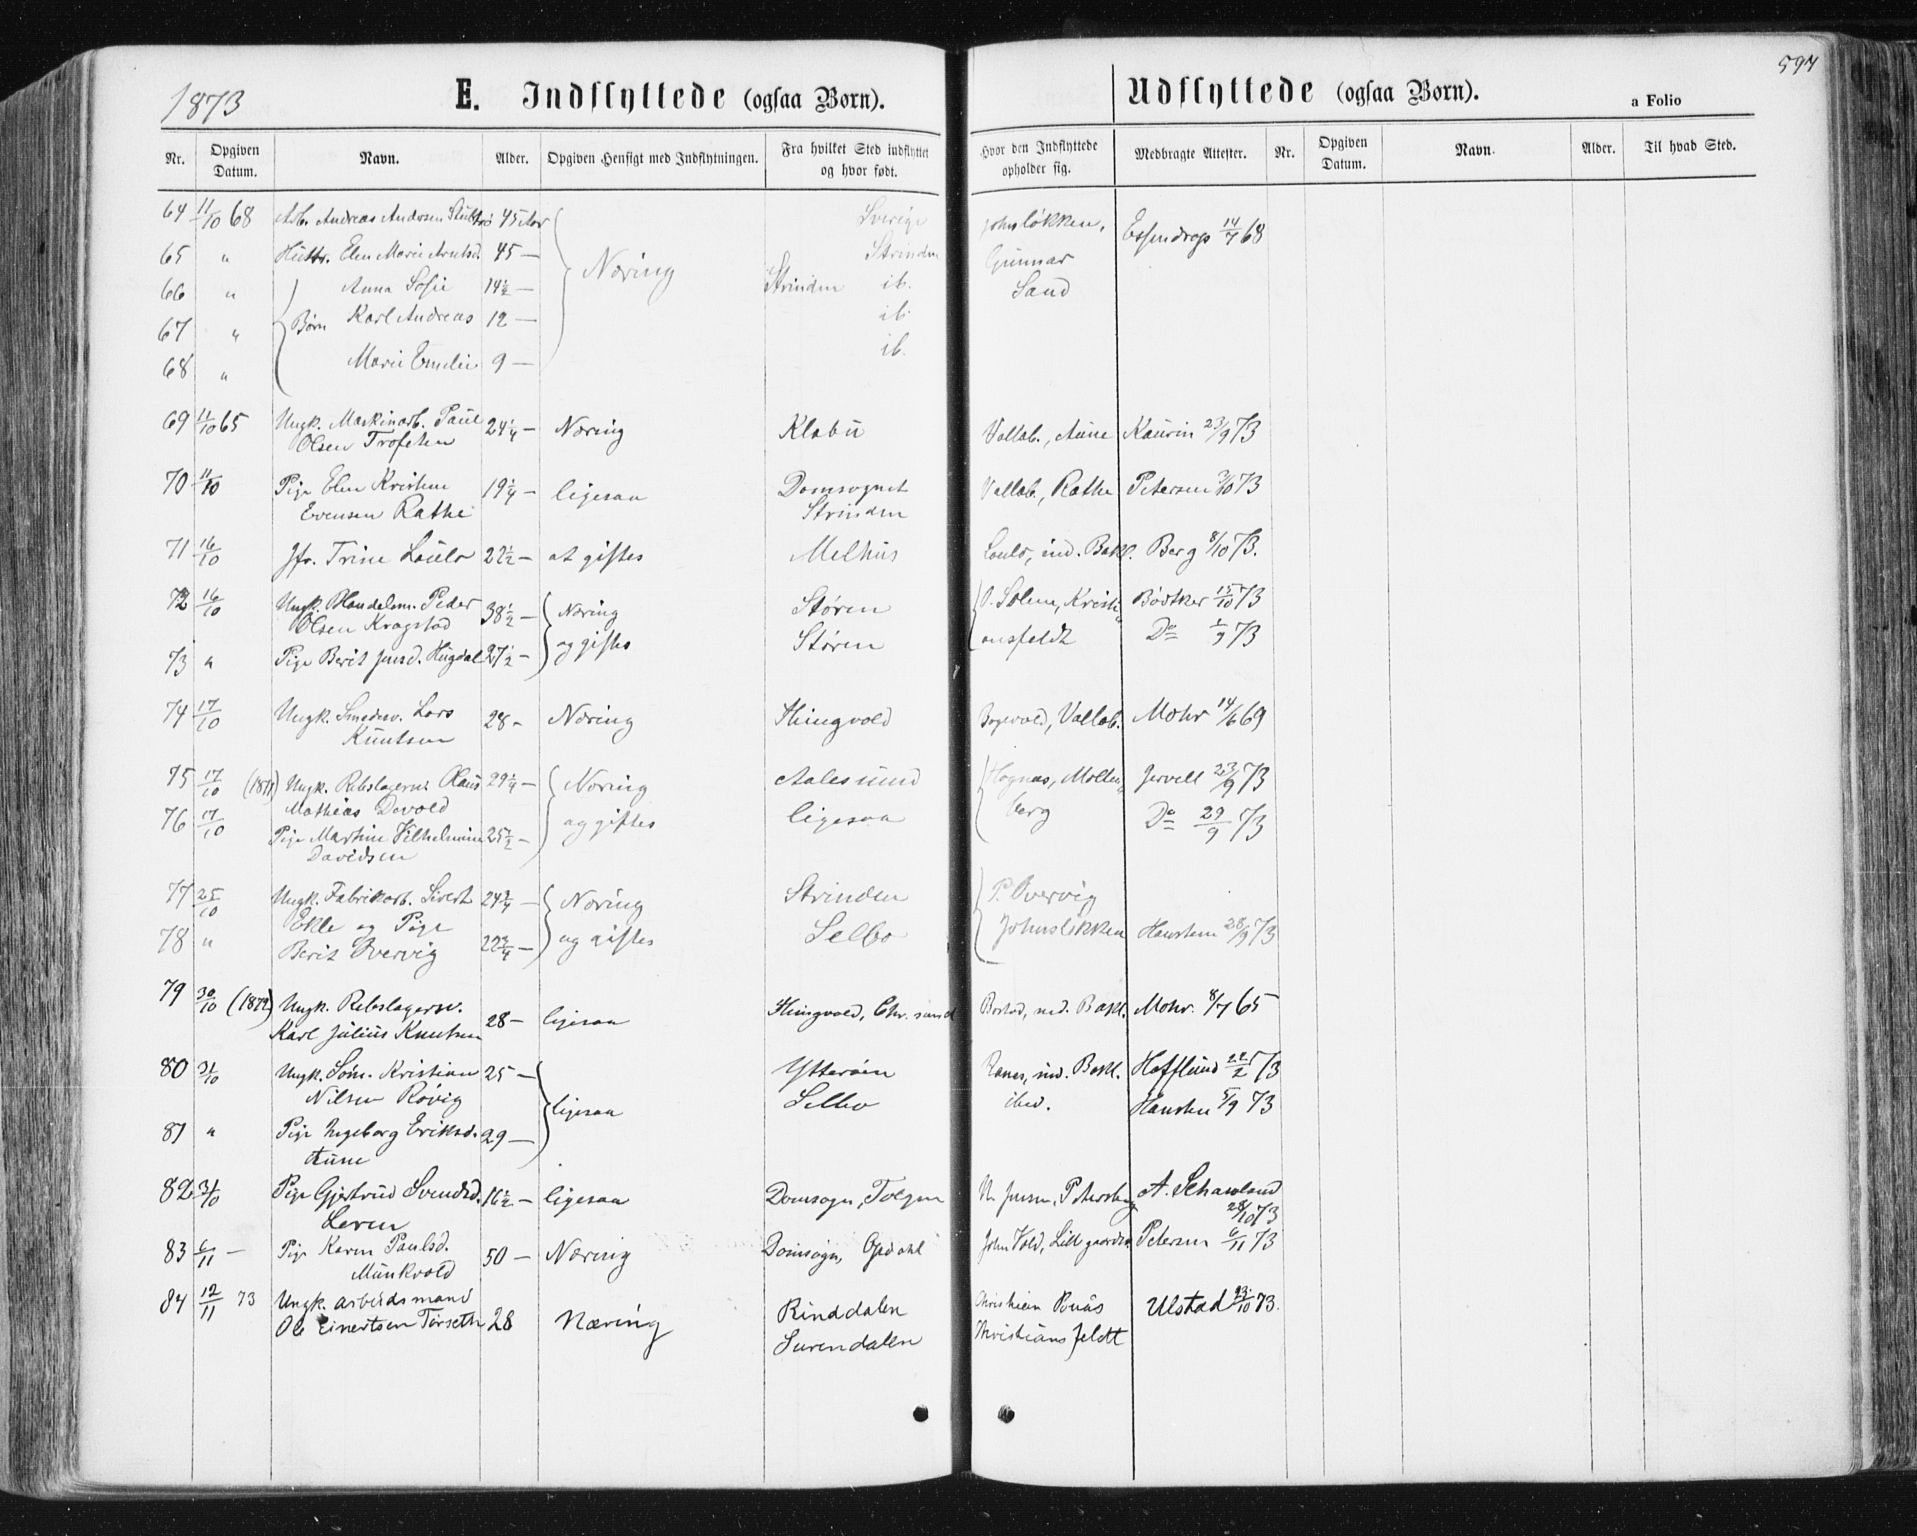 1873
E. Indflyttede (ogsaa Børn).
Udflyttede (ogsaa Børn).
a Folio
594
Nr. Opgiven Datum. Navn. Alder. Opgiven Hensigt med Indflytningen. Fra hvilket Sted indflyttet og hvor født. Hvor den Indflyttede opholder sig. Medbragte Attester. Nr. Opgiven Datum. Navn. Alder. Til hvad Sted.
64 11/10 68 Arb. Andreas Andersen 45 Aar Sverige Johnsløkken, Essendrop 14/7 68
65 " Hustr. Elen Marie Arntsd. 45 — Næring Strinden Gunnar
66 " Anna Sofie 14½ — Strinden ib. Sand
67 " Børn Karl Andreas 12 — ib.
68 " Marie Emilie 9 — ib.
69 11/10 65 Ungk. Maskinarb. Paul 24¼ — Næring Klæbu Vollab., Aune Kaurin 23/9 73
Olsen
70 11/10 Pige Elen Kristine 19¼ — ligesaa Domsognet Vollab., Rathe Petersen 3/10 73
Evensen Rathe Strinden
71 16/10 Jfr. Trine Loulo 22½ — at giftes Melhus Loulo, ind. Bakl. Berg 8/10 73.
72 16/10 Ungk. Handelsm. Peder 38½ — Næring Støren O. Solem, Kristi- Bødtker 15/10 73
Olsen Kragstad
73 " Pige Berit Jensd. Hugdal 27½ — og giftes Støren ansfeldt Do 1/9 73
74 17/10 Ungk. Smedesv. Lars 28 - Næring Thingvold Vollab. Mohr 14/6 69
Knutsen
75 17/10 Ungk. Rebslagersv. Olaus 29¼ — Næring Aalesund Hognæs, Mollen- Jervell 23/9 73
Mathias Devold
76 17/10 Pige Martine Vilhelmine 25½ — og giftes ligesaa berg Do 29/9 73
Davidsen
77 25/10 Ungk. Fabrikarb. Sivert 24¾ — Næring Strinden P. Overvig
Ekle og Pige
78 " Berit Overvig 22¾ — og giftes Selbo Johnsløkken Hansteen 28/9 73
79 30/10 (1872) Ungk. Rebslagersv. 28 — ligesaa Thingvold, Chr.sund ind. Bakl. Mohr 8/7 65
Karl Julius Knutsen
80 31/10 Ungk. Søm. Kristian 25 — Ytterøen Ranes, ind. Bakl. Hofflund 22/2 73
Nilsen Røvig ligesaa Selbo ibid. Hansteen 5/9 73
81 " Pige Ingeborg Eriksd. 29 —
Aune
82 31/10 Pige Gjertrud Svendsd. 16½ — ligesaa Domsogn, Tolgen N. Jensen, Petersborg A. Schavland 28/10 73
Leren
83 6/11 — Pige Karen Paulsd. 50 — Næring Domsogn, Opdahl John Vold, Lillegaarden Petersen 6/11 73
Munkvold
84 12/11 73 Ungk. arbeidsmand 28 Næring Rinddalen Christian Buås Ulstad 23/10 73.
Ole Einertsen Tørseth Surendalen Christiansfeldt